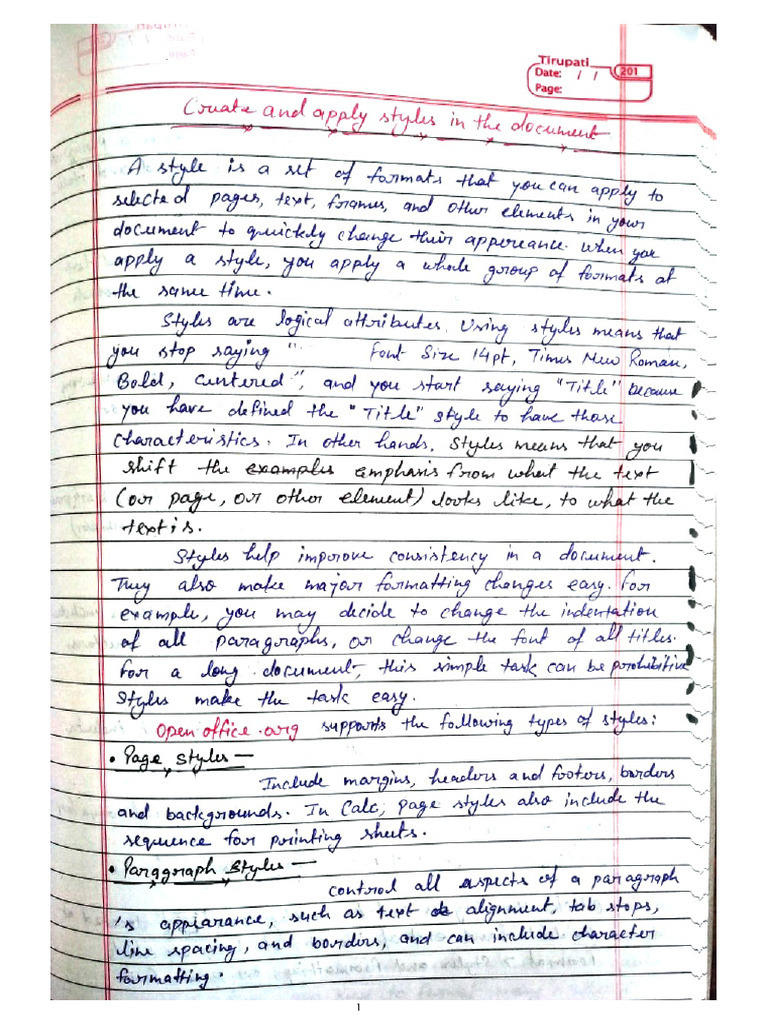 Tirupati
Date: / / 201
Page:
Create and apply styles in the document
A style is a set of formats that you can apply to
selected pages, text, frames, and other elements in your
document to quickly change their appereance. When you
apply a style, you apply a whole group of formats at
the same time.
Styles are logical attributes. Using styles means that
you stop saying " Font Size 14pt, Times New Roman,
Bold, centered", and you start saying "Title" because
you have defined the "Title" style to have those
characteristics. In other hands, Styles means that you
shift the examples emphasis from what the text
(or page, or other element) looks like, to what the
text is.
Styles help improve consistency in a document.
They also make major formatting changes easy. For
example, you may decide to change the indentation
of all paragraphs, or change the font of all titles.
For a long document, this simple task can be prohibitive
Styles make the task easy.
Open office.org supports the following types of styles:
• Page styles —
Include margins, headers and footers, borders
and backgrounds. In Calc, page styles also include the
sequence for printing sheets.
• Paragraph styles —
Control all aspects of a paragraph
's appearance, such as text alignment, tab stops,
line spacing, and borders, and can include character
formatting.
1